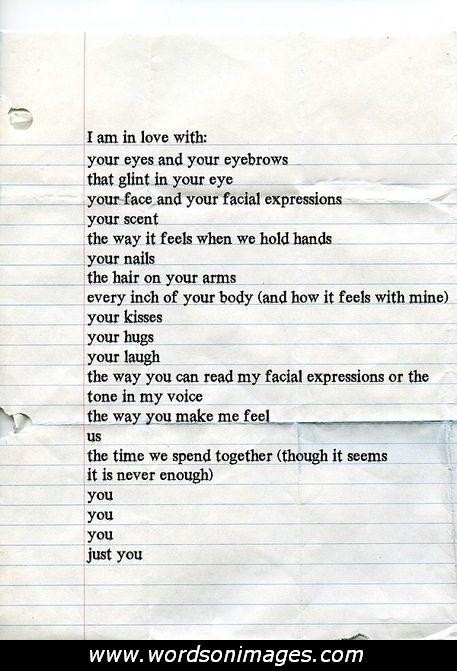 I am in love with:
your eyes and your eyebrows
that glint in your eye
your face and your facial expressions
your scent
the way it feels when we hold hands
your nails
the hair on your arms
every inch of your body (and how it feels with mine)
your kisses
your hugs
your laugh
the way you can read my facial expressions or the
tone in my voice
the way you make me feel
us
the time we spend together (though it seems
it is never enough)
you
you
you
just you
www.wordsonimages.com